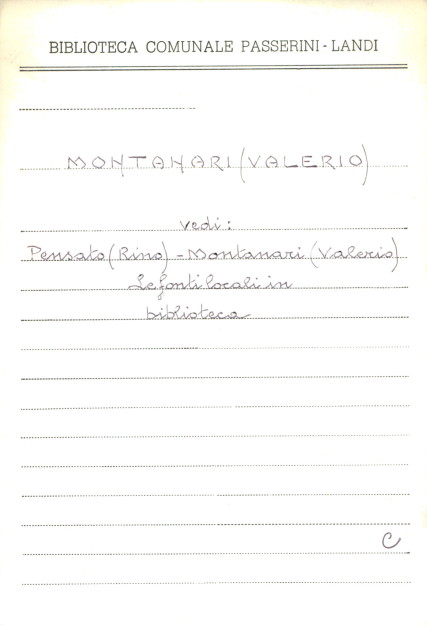 BIBLIOTECA COMUNALE PASSERINI - LANDI
MONTANARI (VALERIO)
vedi:
Pensato (Rino) - Montanari (Valerio)
Le fonti locali in
biblioteca
C